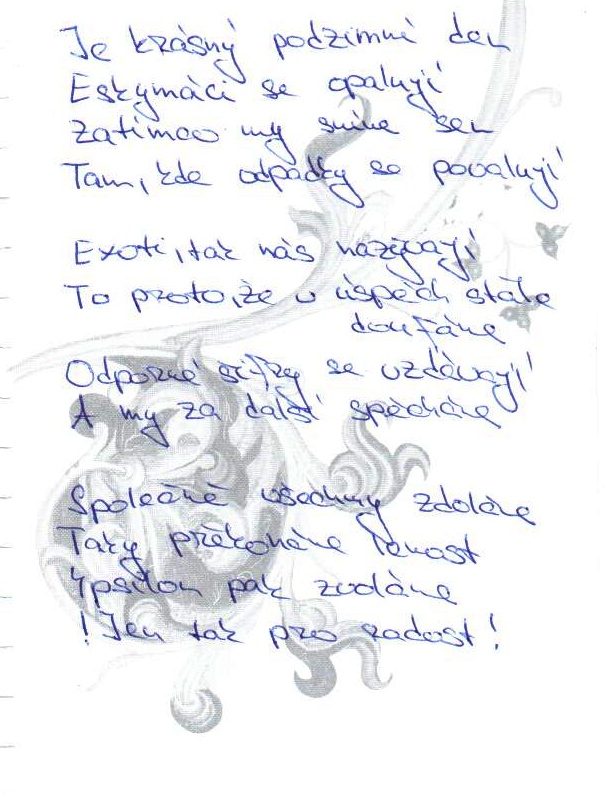 Je krásný podzimní den
Eskymáci se opalují
Zatímco my sníme sen
Tam, kde odpadky se povalují
Exoti, tak nás nazývají
To proto, že v úspěch stále
doufáme
Odporné šifry se vzdávají
A my za další spěcháme
Společně všechny zdoláme
Taky překonáme lenost
Ypsilon pak zvoláme
! Jen tak pro radost !